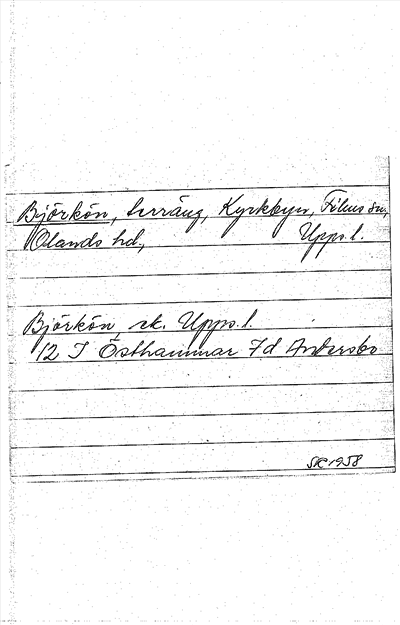 Björkön, terräng, Kyrkbyn, Films sn,
Olands hd, Upps.l.
Björkön, ek. Upps.l.
12 I Östhammar 7d Andersbo
SK 1958